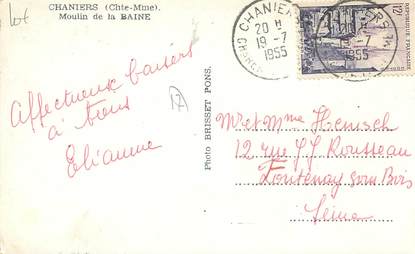 lot
CHANIERS (Chte-Mme).
Moulin de la BAINE
CHANIERS
20 H
19-7
1955
1955
12F
REPUBLIQUE FRANÇAISE
Affectueux baisers
à tous
Elianne
Photo BRISSET PONS.
Mr et Mme Henisch
12 rue JJ Rousseau
Fontenay sous Bois
Seine